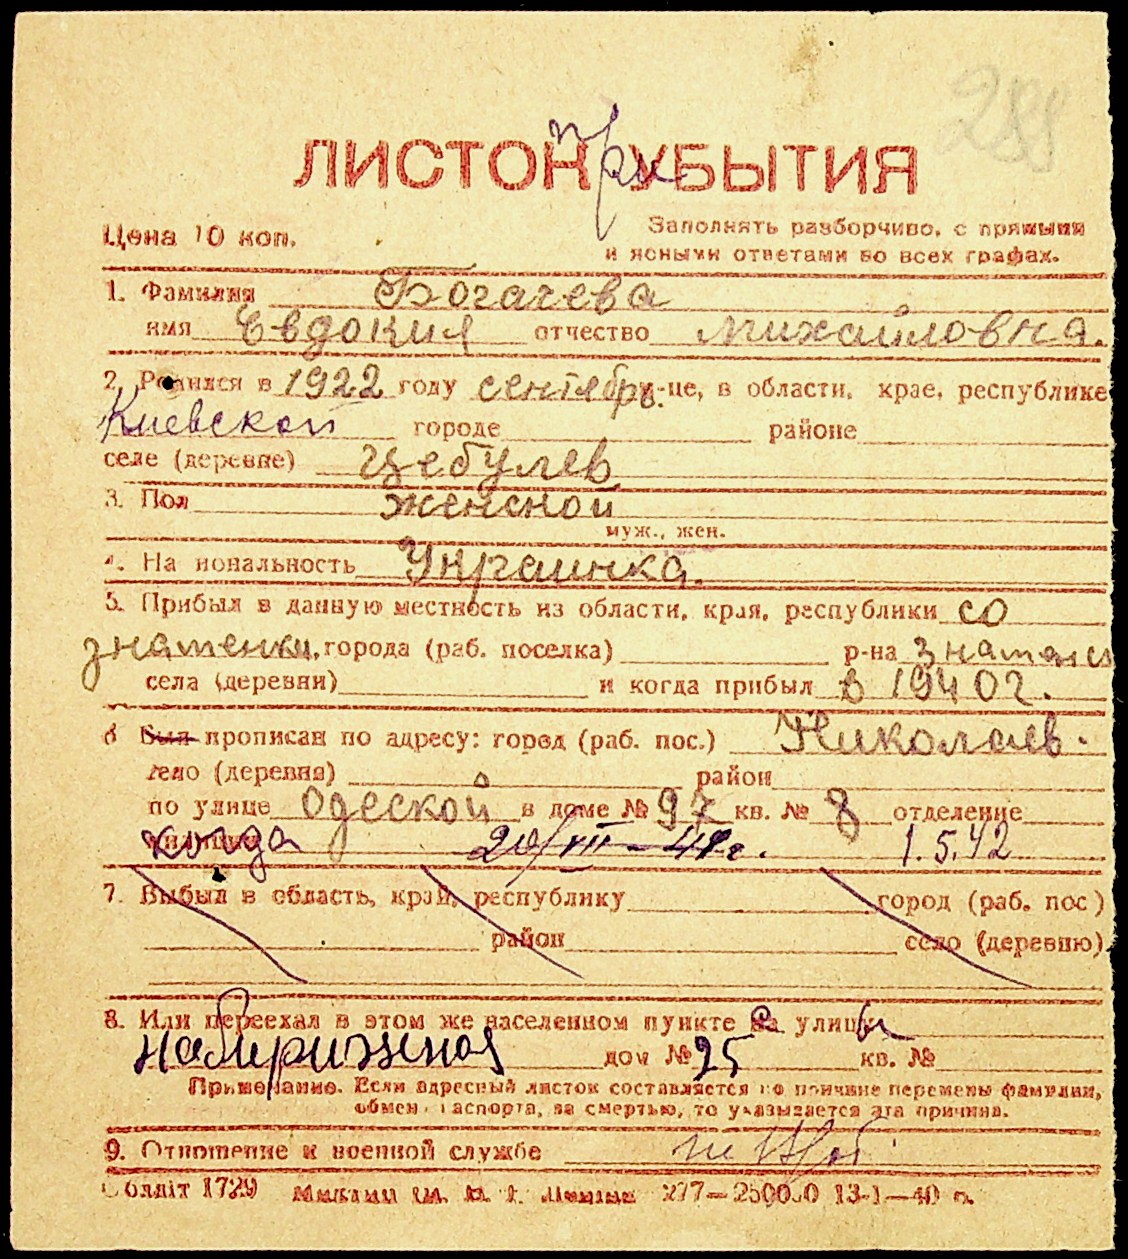 288
при
ЛИСТОК УБЫТИЯ
Цена 10 коп.
Заполнять разборчиво, с прямыми
и ясными ответами во всех графах.
1. Фамилия Богачева
имя Евдокия отчество Михайловна.
2. Родился в 1922 году сентябрь м-це, в области, крае, республике
Киевской городе районе
селе (деревне) Цебулев
3. Пол женской
муж., жен.
4. Национальность Украинка.
5. Прибыл в данную местность из области, края, республики со
знаменки, города (раб. поселка) р-на
села (деревни) и когда прибыл в 1940г.
6 Был прописан по адресу: город (раб. пос.) Николаев.
село (деревня) район
по улице Одеской в доме № 97 кв. № 8 отделение
когда 1.5.42
7. Выбыл в область, край, республику город (раб. пос)
район село (деревню)
8. Или переехал в этом же населенном пункте на улицу
Набирижная дом № 25 кв. №
Примечание. Если адресный листок составляется по причине перемены фамилии,
обмен паспорта, за смертью, то указывается эта причина.
9. Отношение к военной службе
Облліт 1729 277—250000 13-1—40 г.